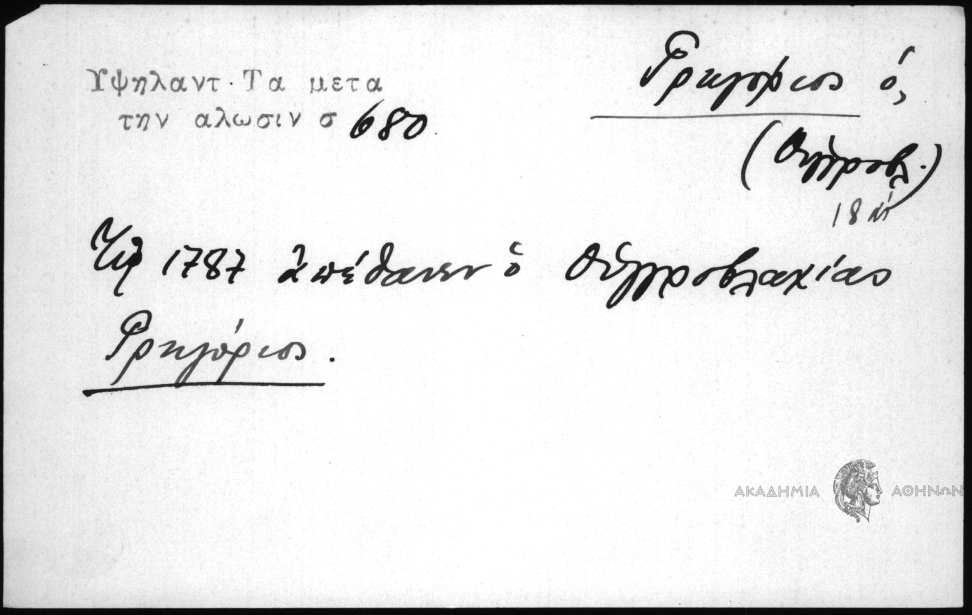 Υψηλαντ. Τα μετα
την αλωσιν σ 680
Γρηγόριος ὁ,
(Οὑγγροβλ.)
18 αἰ
Τῷ 1787 ἀπέθανεν ὁ Οὑγγροβλαχίας
Γρηγόριος.
ΑΚΑΔΗΜΙΑ ΑΘΗΝΩΝ